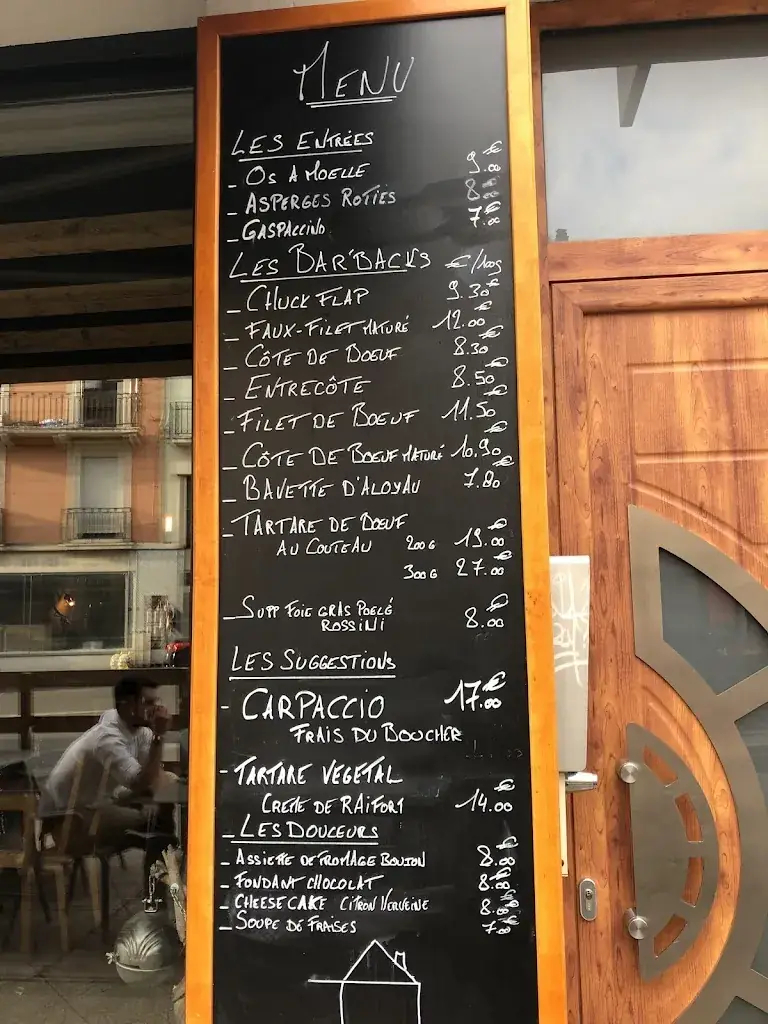 MENU
LES ENTRÉES
- OS A MOELLE 9.00€
- ASPERGES ROTIES 8.00€
- GASPACCINO 7.00€
LES BAR'BACKS €/100g
- CHUCK FLAP 9.30€
- FAUX-FILET MATURÉ 12.00€
- CÔTE DE BOEUF 8.30€
- ENTRECÔTE 8.50€
- FILET DE BOEUF 11.50€
- CÔTE DE BOEUF MATURÉ 10.90€
- BAVETTE D'ALOYAU 7.80€
- TARTARE DE BOEUF
AU COUTEAU 200G 19.00€
300G 27.00€
- SUPP FOIE GRAS POELÉ
ROSSINI 8.00€
LES SUGGESTIONS
- CARPACCIO 17.00€
FRAIS DU BOUCHER
- TARTARE VEGETAL
CREME DE RAIFORT 14.00€
- LES DOUCEURS
- ASSIETTE DE FROMAGE BOUJON 8.00€
- FONDANT CHOCOLAT 8.00€
- CHEESECAKE CITRON VERVEINE 8.00€
- SOUPE DE FRAISES 7.00€